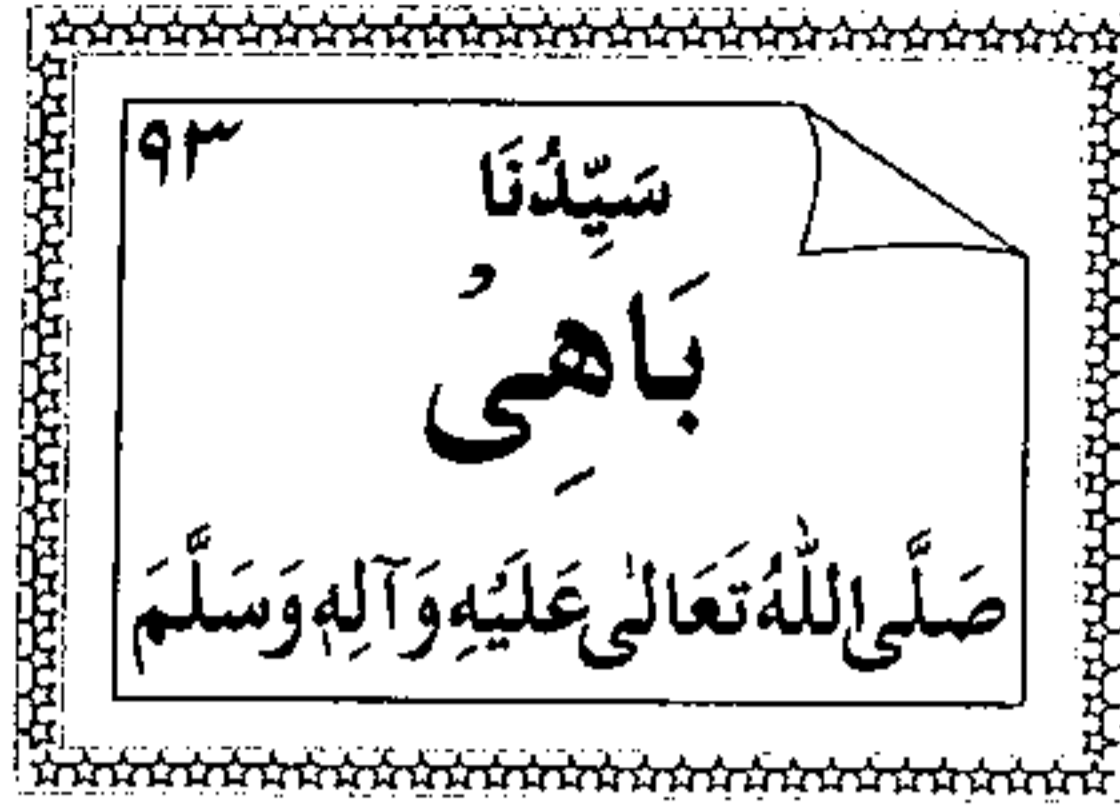 ٩٣
سَيِّدُنَا
بَاهِیُ
صَلَّى اللّٰهُ تَعَالٰى عَلَيْهِ وَآلِهٖ وَسَلَّمَ